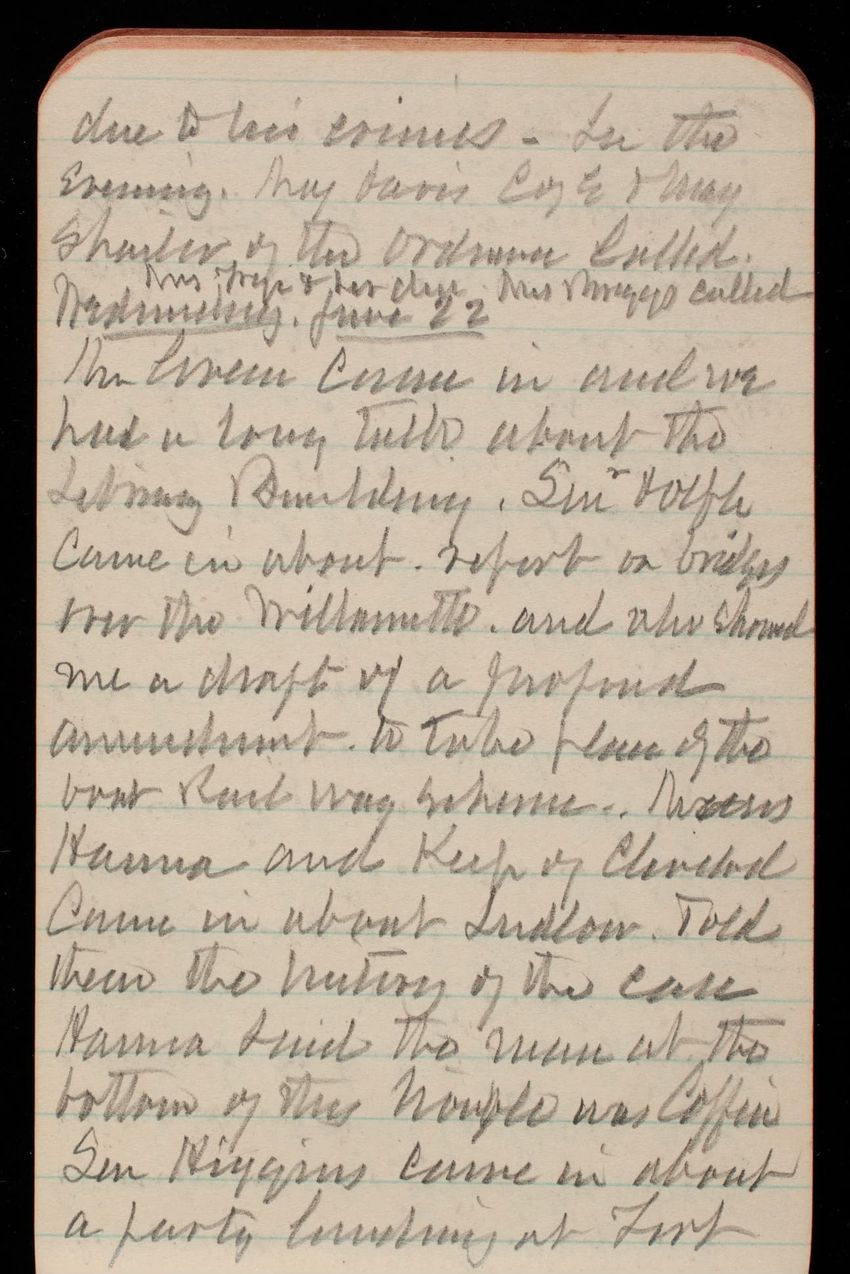 due to his crimes - In the
Evening. Maj Davis Cog E & Maj
Shaler of the Ordnance Called.
Mrs Frye & her dau. Mrs Maggs called
Wednesday. June 22
Mr Green Came in and we
had a long talk about the
Library Building. Senr Dolph
Came in about. report on bridges
over the Willamette. and who showed
me a draft of a proposed
amendment. to take place of the
boat Rail way scheme..
Hanna and Keep of Cleveland
Came in about Ludlow. Told
them the history of the case
Hanna Said the man at the
bottom of this trouble was Coffin
Sen Higgins came in about
a party lunching at Fort